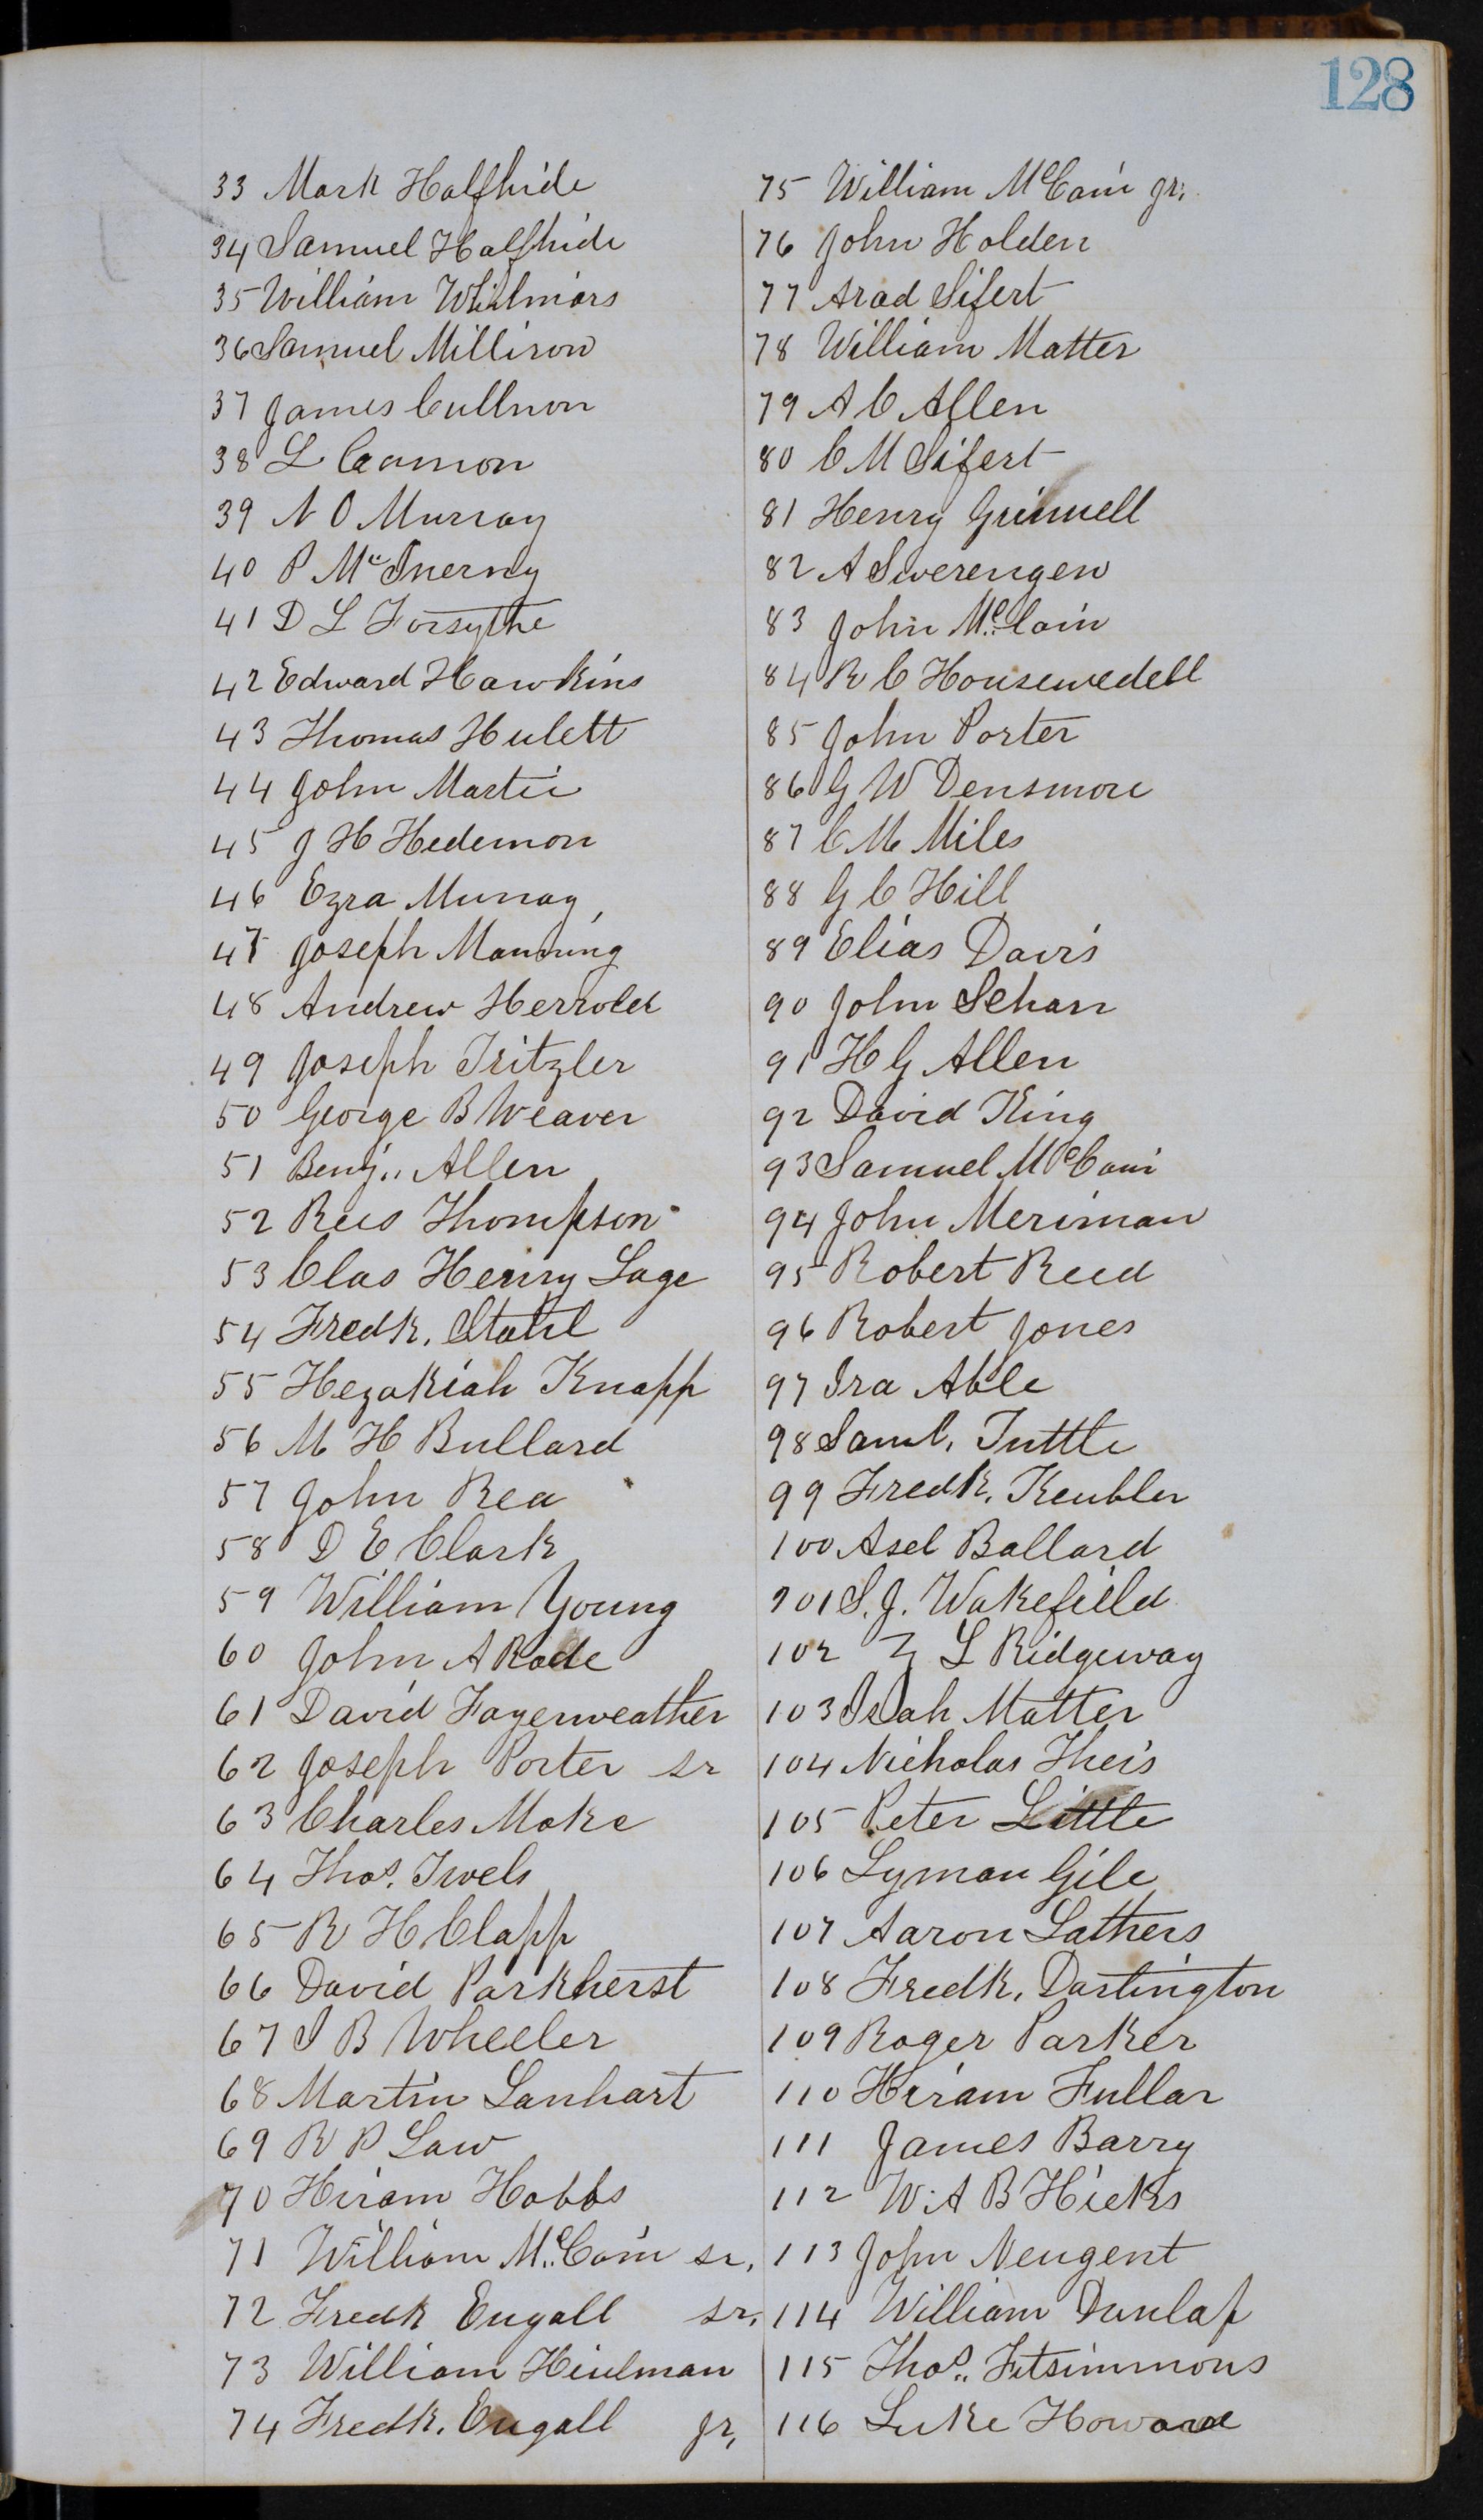 128
33 Mark Halfhide
34 Samuel Halfhide
35 William Whilmars
36 Samuel Millison
37 James Cullnon
38 L Cammon
39 N O Murray
40 P McInerny
41 D L Forsythe
42 Edward Hawkins
43 Thomas Hulett
44 John Martin
45 J H Hedemon
46 Ezra Murray,
47 Joseph Manning
48 Andrew Herrold
49 Joseph Tritzler
50 George B Weaver
51 Benj,, Allen
52 Rees Thompson
53 Clas Henry Lage
54 Fredk. Stahl
55 Hezakiah Knapp
56 M H Bullard
57 John Rea
58 D E Clark
59 William Young
60 John A Rode
61 David Fayerweather
62 Joseph Porter sr
63 Charles Moke
64 Thos. Twels
65 R H Clapp
66 David Parkherst
67 I B Wheeler
68 Martin Lanhart
69 R P Law
70 Hiram Hobbs
71 William McCain sr,
72 Fredk Engall sr,
73 William Hiulman
74 Fredk. Engall jr,
75 William McCain jr,
76 John Holden
77 Arad Sifert
78 William Matter
79 A C Allen
80 C M Sifert
81 Henry Grinnell
82 A Swerengen
83 John McCain
84 R C Housewedell
85 John Porter
86 G W Densmore
87 C M Miles
88 G C Hill
89 Elias Davis
90 John Schan
91 H G Allen
92 David King
93 Samuel McCain
94 John Meriman
95 Robert Reed
96 Robert Jones
97 Ira Able
98 Saml, Tuttle
99 Fredk. Keubler
100 Asel Ballard
101 S. J. Wakefield
102 Z L Ridgeway
103 Isah Matter
104 Nicholas Theis
105 Peter Little
106 Lyman Gile
107 Aaron Lathers
108 Fredk. Dartington
109 Roger Parker
110 Hiram Fullar
111 James Barry
112 W. A B Hicks
113 John Neugent
114 William Dunlap
115 Thos,, Fitsimmons
116 Luke Howard